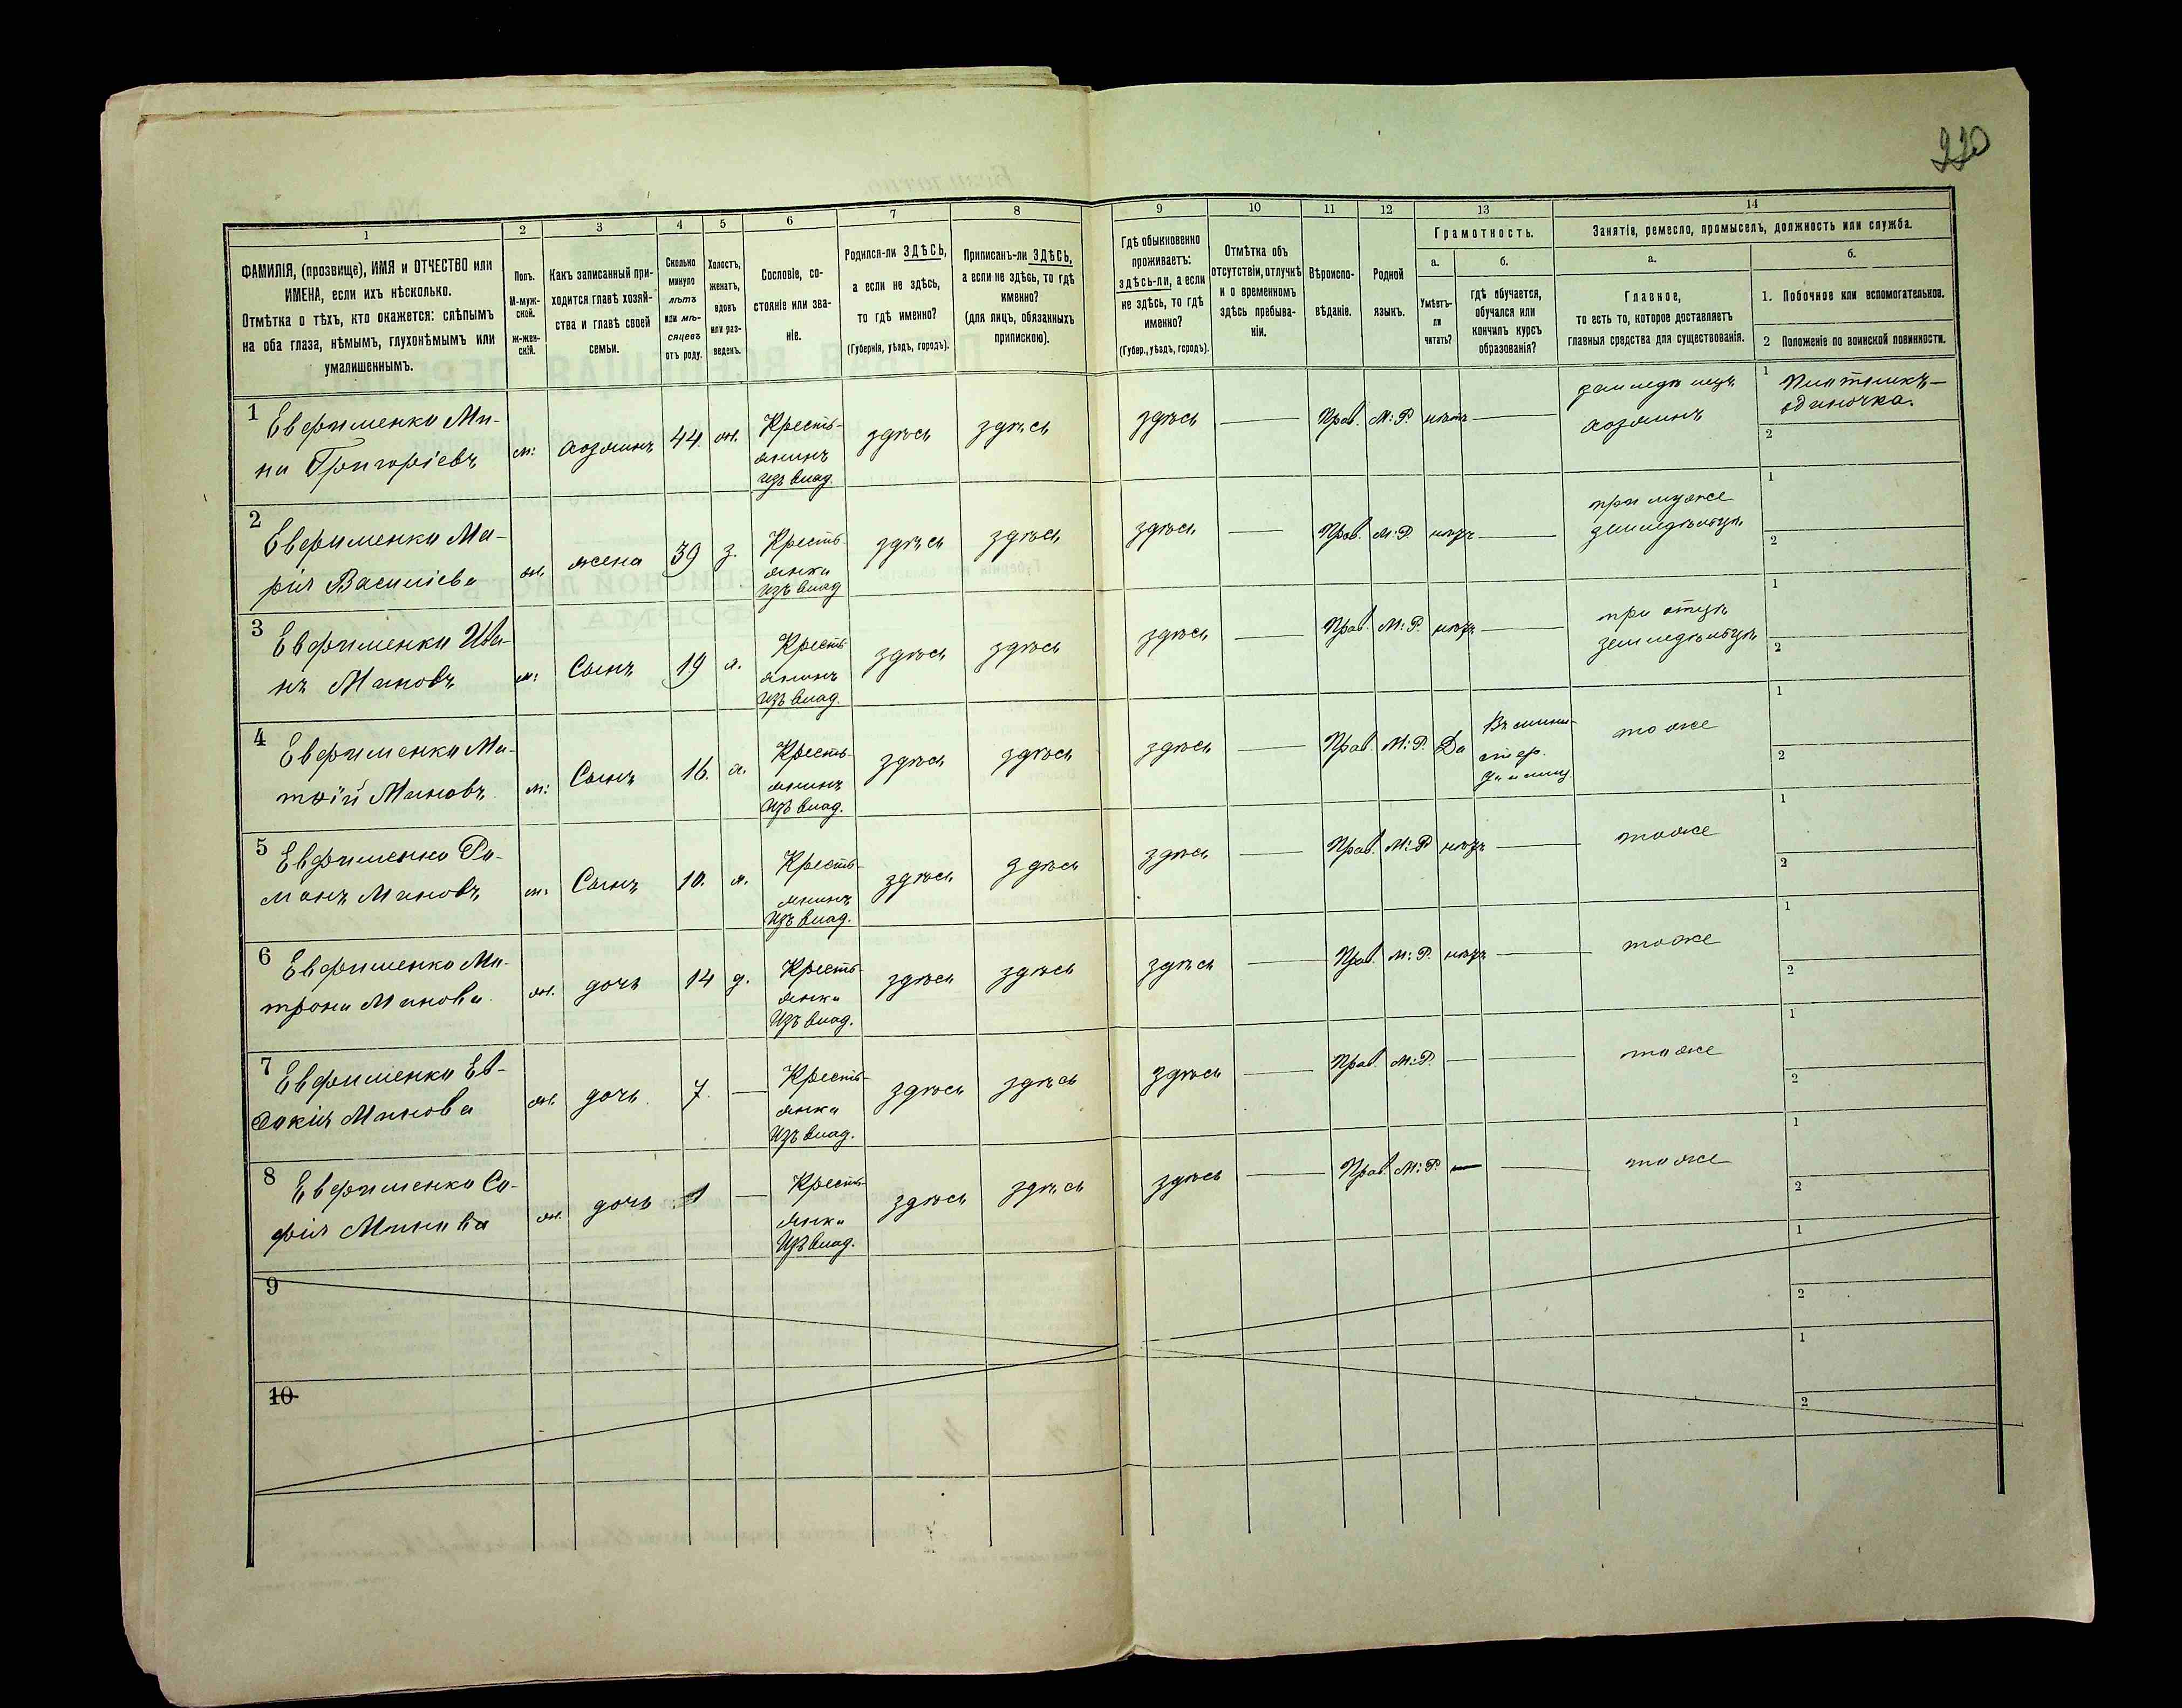 220
1 2 3 4 5 6 7 8 9 10 11 12 13 14
ФАМИЛІЯ, (прозвище), ИМЯ и ОТЧЕСТВО или
ИМЕНА, если ихъ нѣсколько.
Отмѣтка о тѣхъ, кто окажется: слѣпымъ
на оба глаза, нѣмымъ, глухонѣмымъ или
умалишеннымъ.
Полъ.
М-муж-
ской.
ж-жен-
скій.
Какъ записанный при-
ходится главѣ хозяй-
ства и главѣ своей
семьи.
Сколько
минуло
лѣтъ
или мѣ-
сяцевъ
отъ роду.
Холостъ,
женатъ,
вдовъ
или раз-
веденъ.
Сословіе, со-
стояніе или зва-
ніе.
Родился-ли ЗДѢСЬ,
а если не здѣсь,
то гдѣ именно?
(Губернія, уѣздъ, городъ).
Приписанъ-ли ЗДѢСЬ,
а если не здѣсь, то гдѣ
именно?
(для лицъ, обязанныхъ
припискою).
Гдѣ обыкновенно
проживаетъ:
здѣсь-ли, а если
не здѣсь, то гдѣ
именно?
(Губер., уѣздъ, городъ).
Отмѣтка объ
отсутствіи, отлучкѣ
и о временномъ
здѣсь пребыва-
ніи.
Вѣроиспо-
вѣданіе.
Родной
языкъ.
Грамотность.
а.
Умѣетъ-
ли
читать?
б.
Гдѣ обучается,
обучался или
кончилъ курсъ
образованія?
Занятія, ремесло, промыселъ, должность или служба.
а.
Главное,
то есть то, которое доставляетъ
главныя средства для существованія.
б.
1. Побочное или вспомогательное.
2 Положеніе по воинской повинности.
1 Евфименко Ми-
на Григоріевъ
м: хозяинъ 44. ж.
Кресть-
янинъ
изъ влад.
здѣсь здѣсь здѣсь — Прав. М:Р. нѣтъ —
хозяинъ
1 Плотникъ-
одиночка.
2
2 Евфименко Ма-
рія Василіева
ж. жена 39 з.
Кресть-
янка
изъ влад
здѣсь здѣсь здѣсь — Прав. М:Р. нѣтъ —
при муже
земледѣлецъ
1
2
3 Евфименко Ива-
нъ Миновъ
м: Сынъ 19 х.
Кресть-
янинъ
изъ влад.
здѣсь здѣсь здѣсь — Прав. М:Р. нѣтъ —
при отцѣ
земледѣлецъ
1
2
4 Евфименко Ма-
твій Миновъ
м: Сынъ 16. х.
Кресть-
янинъ
изъ влад.
здѣсь здѣсь здѣсь — Прав. М:Р. Да
тоже
1
2
5 Евфименко Ро-
манъ Миновъ
м: Сынъ 10. х.
Кресть-
янинъ
изъ влад.
здѣсь здѣсь здѣсь — Прав. М:Р нѣтъ —
тоже
1
2
6 Евфименко Ма-
трона Минова
ж. дочь 14 д.
Кресть-
янка
изъ влад.
здѣсь здѣсь здѣсь — Прав. М:Р. нѣтъ —
тоже
1
2
7 Евфименко Ев-
докія Минова
ж. дочь. 7. —
Кресть-
янка
изъ влад.
здѣсь здѣсь здѣсь — Прав. М:Р. — —
тоже
1
2
8 Евфименко Со-
фія Минова
ж. дочь 1 —
Кресть-
янка
изъ влад.
здѣсь здѣсь здѣсь — Прав. М:Р. — —
тоже
1
2
9
1
2
10
1
2